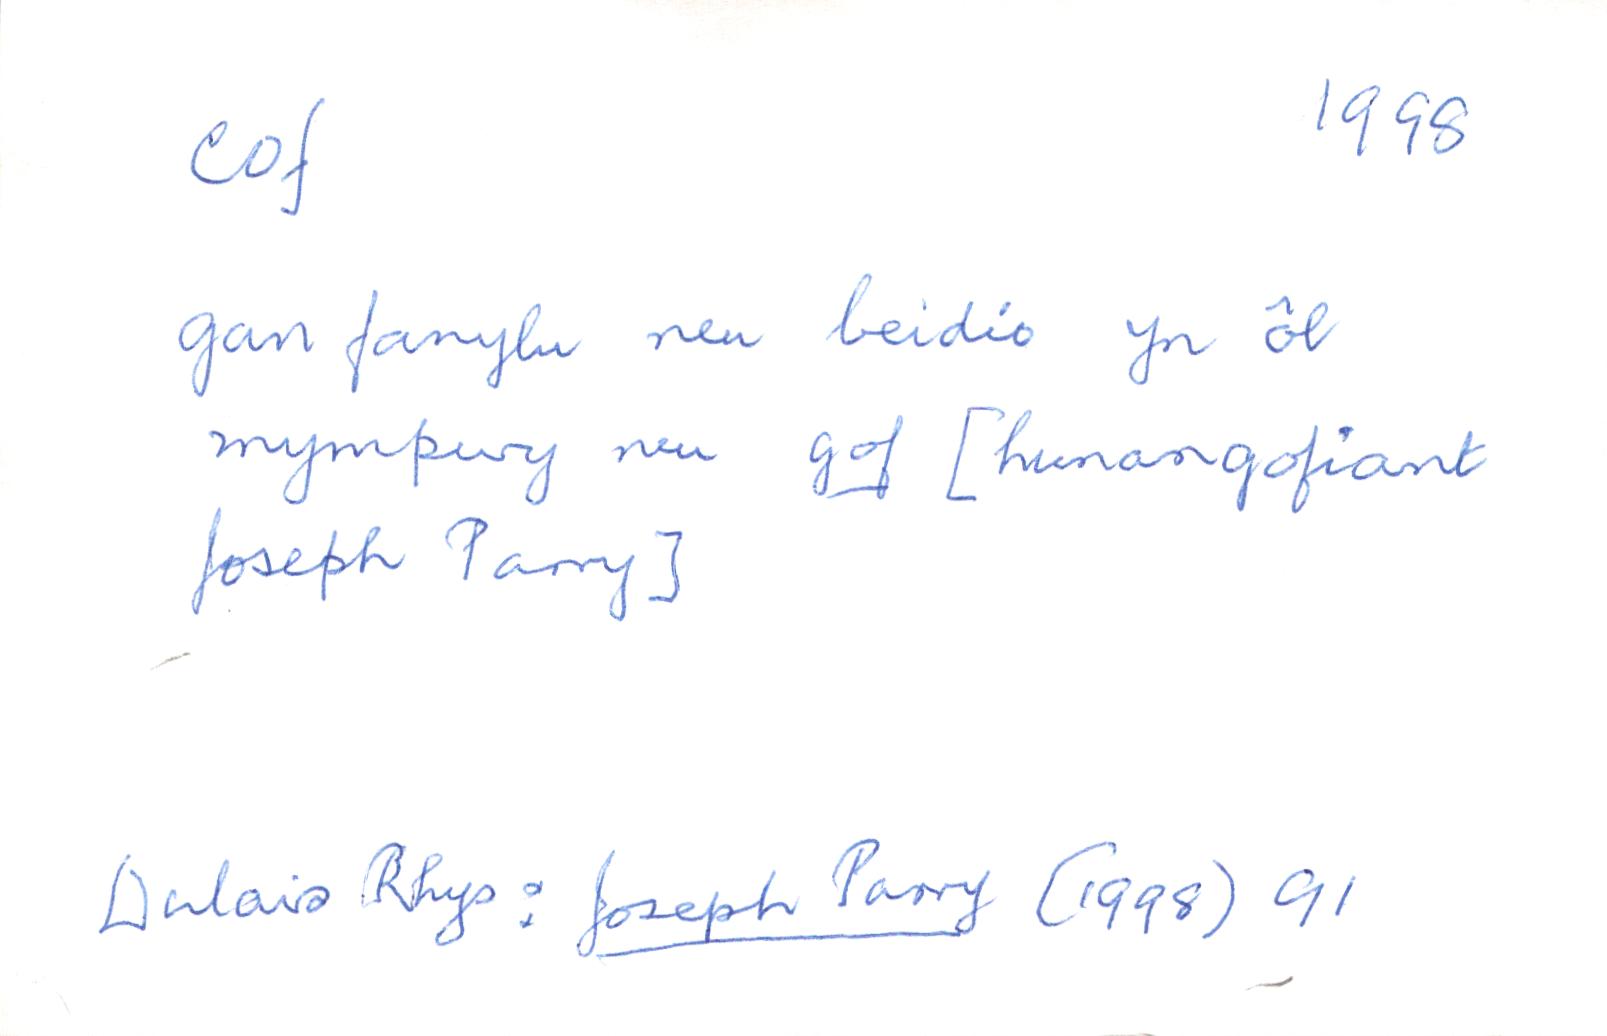 cof 1998
gan fanylu neu beidio yn ôl
mympwy neu gof [hunangofiant
Joseph Parry]
Dulais Rhys: Joseph Parry (1998) 91